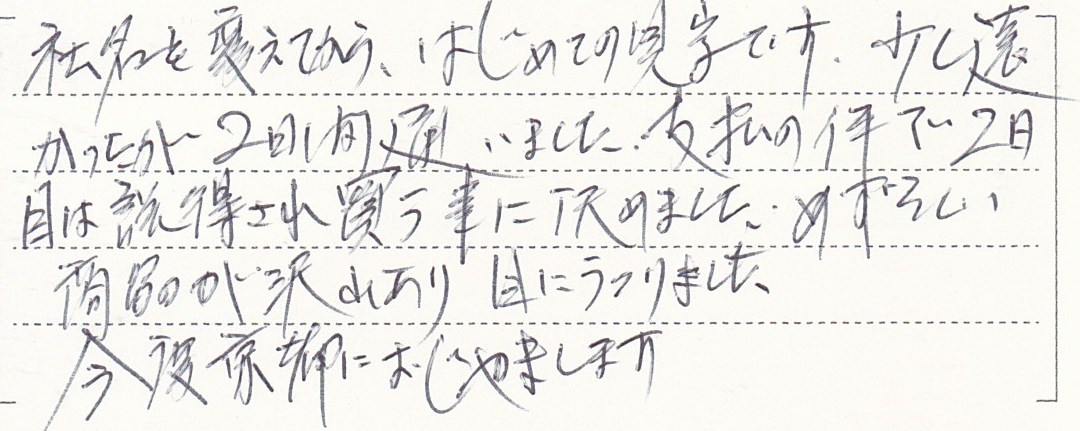 社名を変えてから、はじめての見学です。少し遠
かったが2日間通いました。支払の件で2日
目は説得され買う事に決めました。めずらしい
商品が沢山あり 目にうつりました。
今度京都におじゃまします